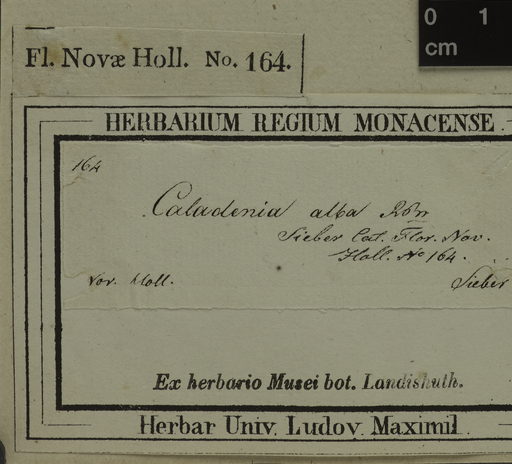 0 1
cm
Fl. Novæ Holl. No. 164.
HERBARIUM REGIUM MONACENSE.
164
Caladenia alba RBr
Sieber Cat. Flor. Nov.
Holl. No 164.
Nov. Holl. Sieber
Ex herbario Musei bot. Landishuth.
Herbar Univ. Ludov. Maximil.